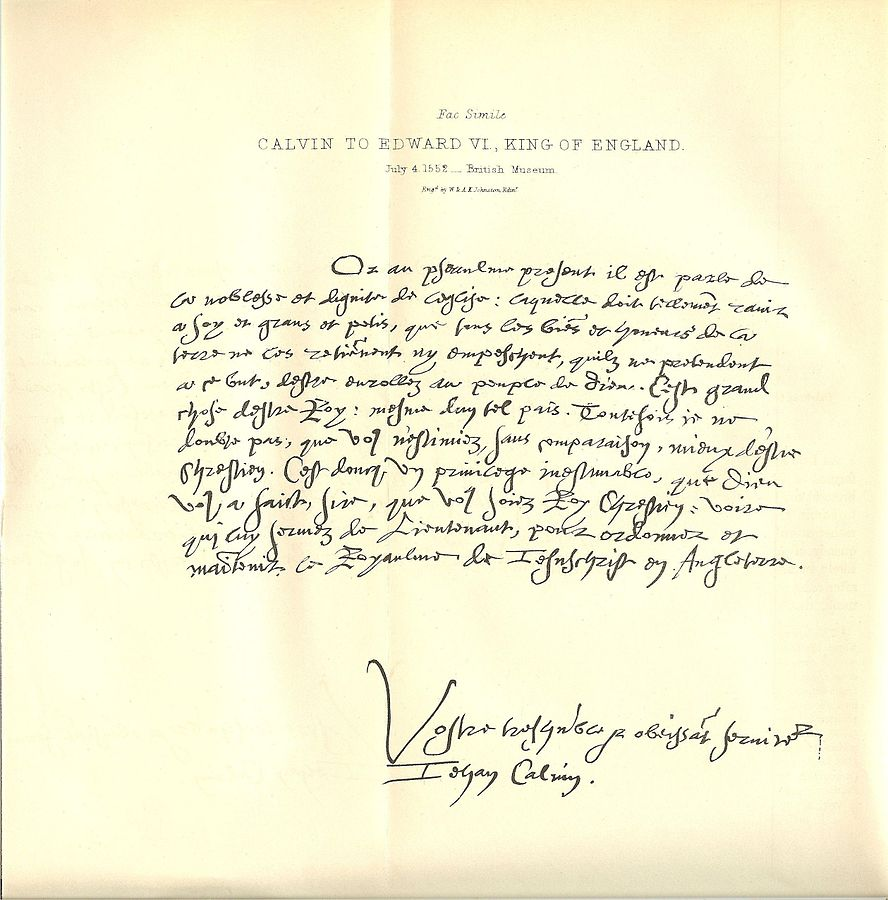 Fac Simile
CALVIN TO EDWARD VI., KING OF ENGLAND.
July 4. 1552 __ British Museum.
Engd. by W. & A. K. Johnston, Edinr.
Or au pseaulme present il est parle de
la noblesse et dignite de leglise: laquelle doit tellemēt ravir
a soy et grans et petis, que tous les biēs et honeurs de la
terre ne les retiēnent ny empeschent, quilz ne pretendent
a ce but, destre enrollez au peuple de Dieu. Cest grand
chose destre Roy: mesme dun tel pais. Toutefois ie ne
doubte pas, que vous nestimiez sans comparaison, mieux destre
Chrestien. Cest doncq un privilege inestimable, que Dieu
vous a faict, sire, que vous soiez Roy Chrestien: voire
qui luy servez de Lieutenant, pour ordonner et
maītenir le Royaulme de Iesuschrist en Angleterre.
Vostre treshūble et obeissāt serviteur
Iehan Calvin.